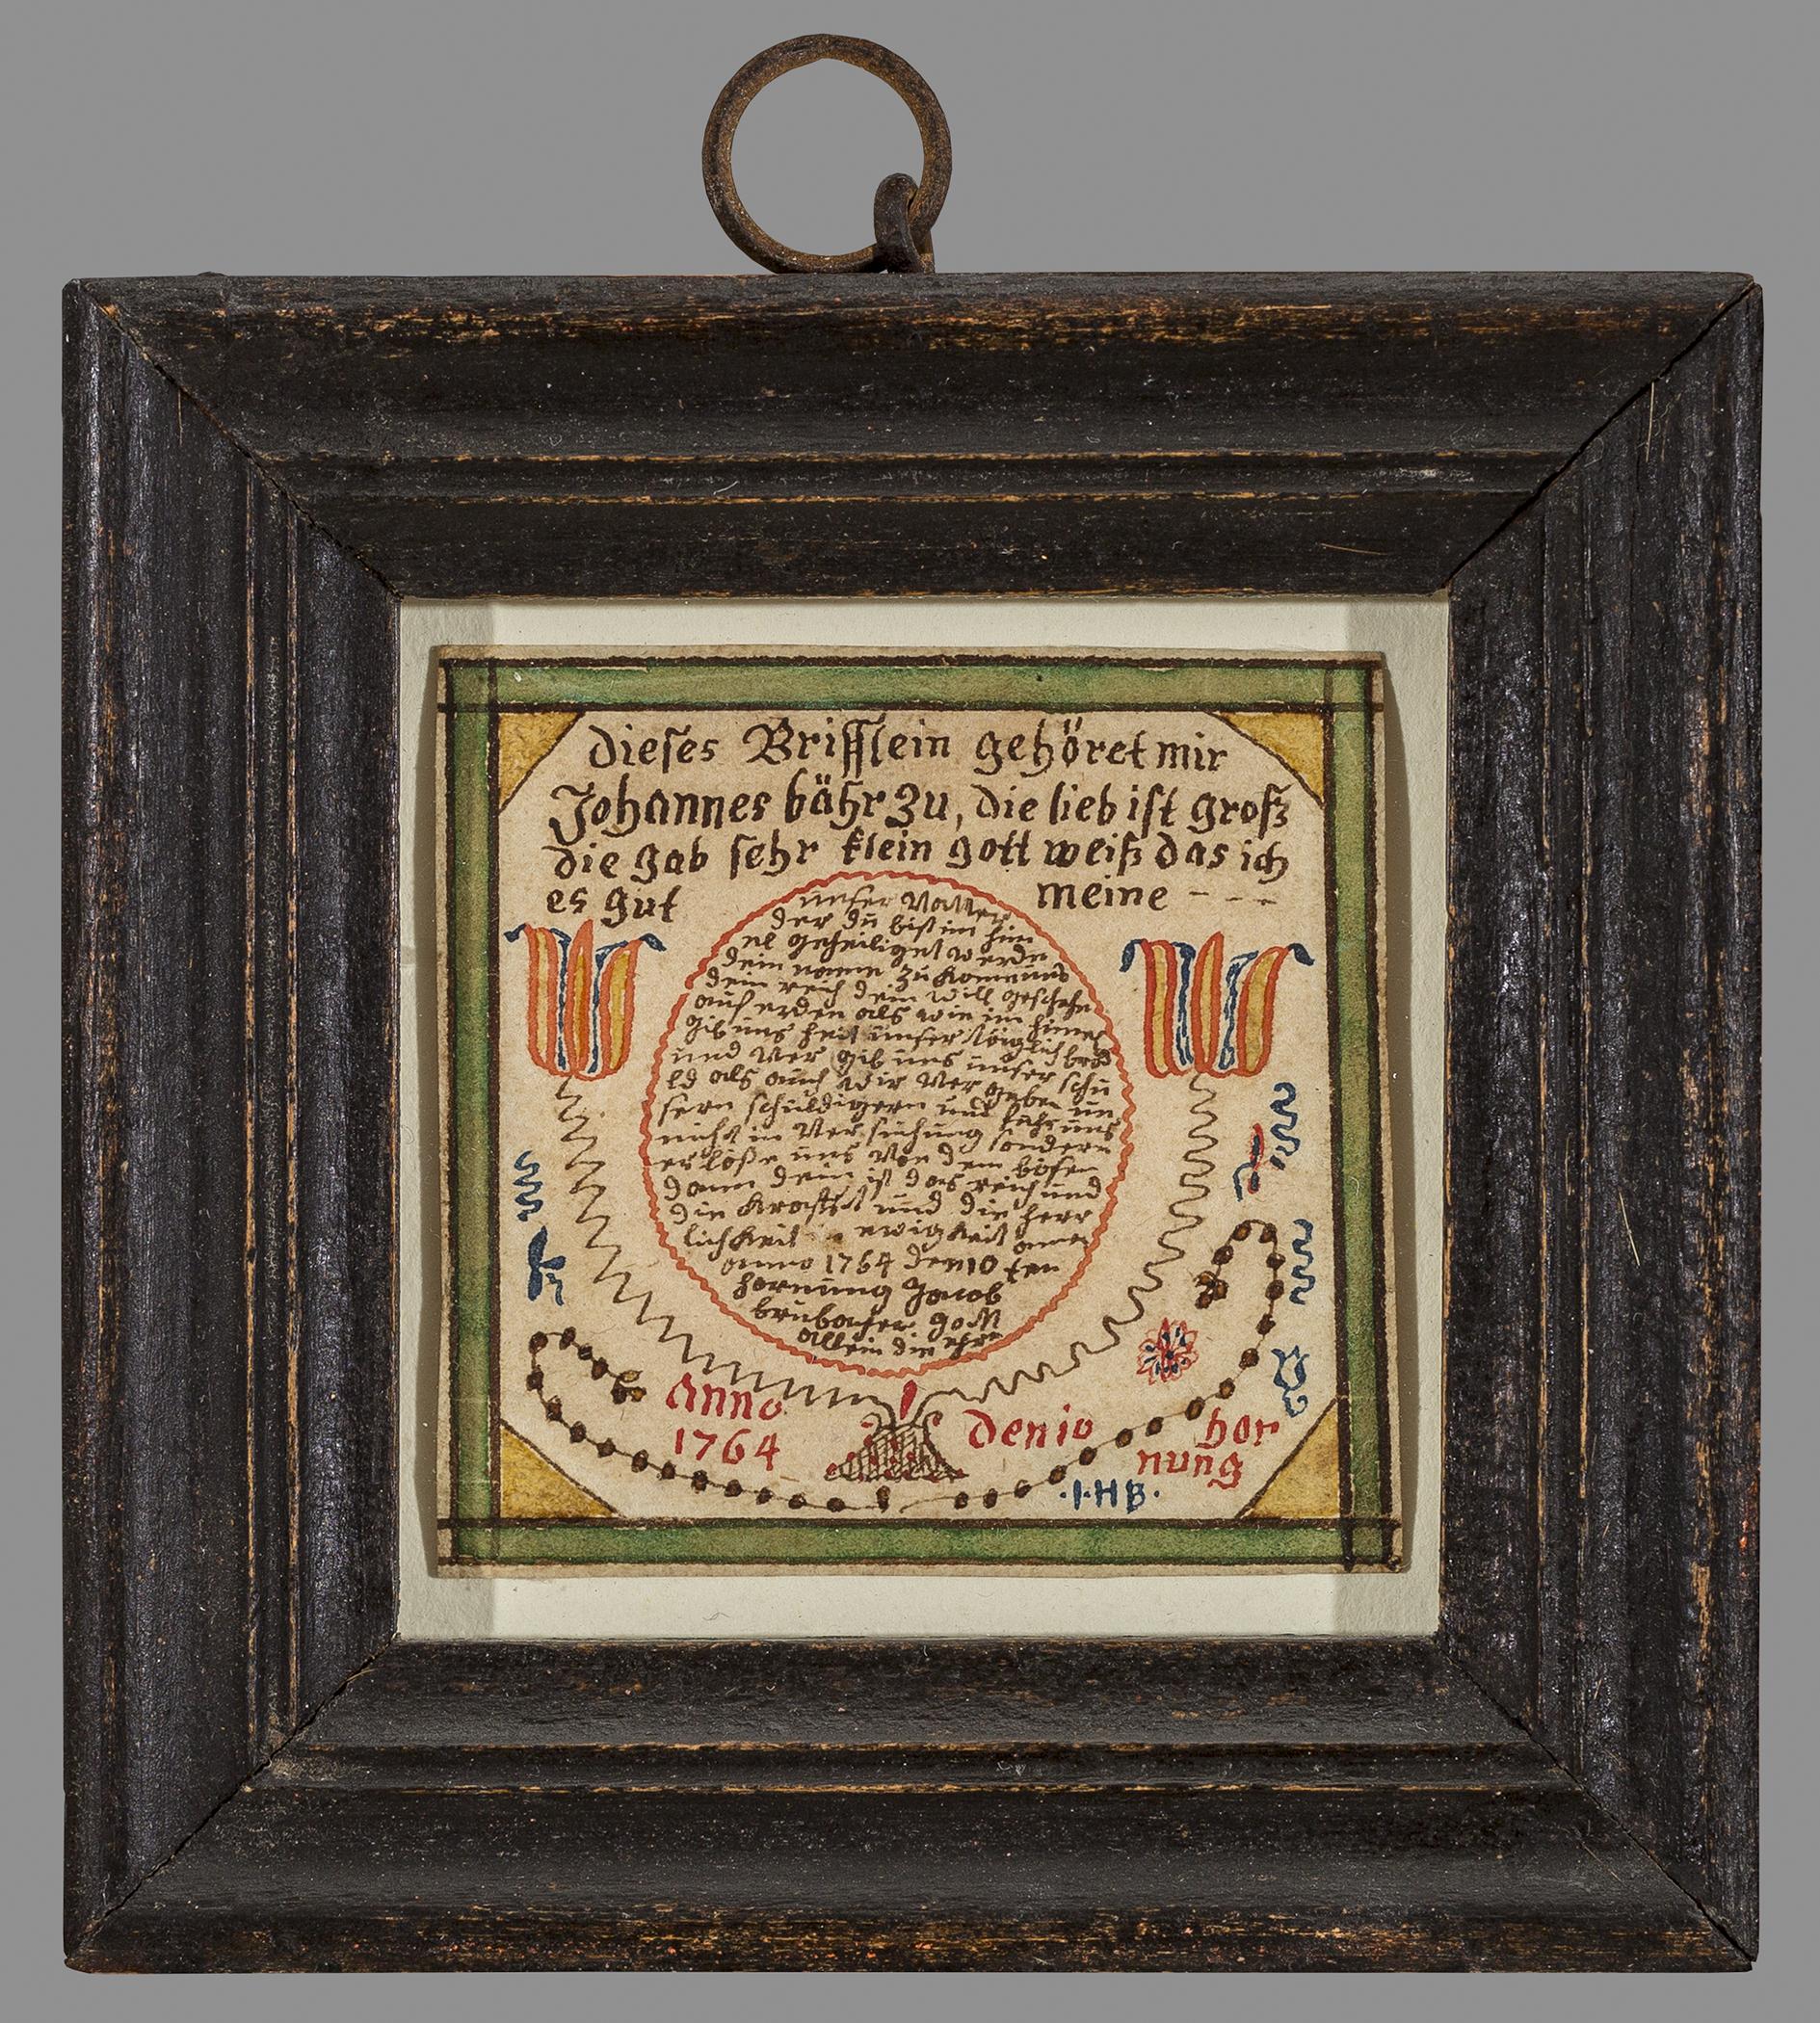 dieses Brifflein gehöret mir
Johannes bähr zu, die lieb ist groß
die gab sehr klein gott weiß das ich
es gut meine - - -
unser Vatter
der dü bist im him
el geheiliget werde
dein name zü kom uns
dein reich dein will geschehe
auf erden als wie im himel
gib üns heüt ünser töiglich brod
und Ver gib üns ünser schü
ld als aüch wir Ver geben ün
sern schüldigern und führ üns
nicht in Ver süchüng sondern
erlöße üns Von dem bösen
dann dein ist das reich und
die Krafft und die herr
lichkeit ewigkeit amen
anno 1764 den 10 ten
hornüng Jacob
brübacher gott
allein die ehre
Anno
1764
den 10 hor
nung
·I·HB·